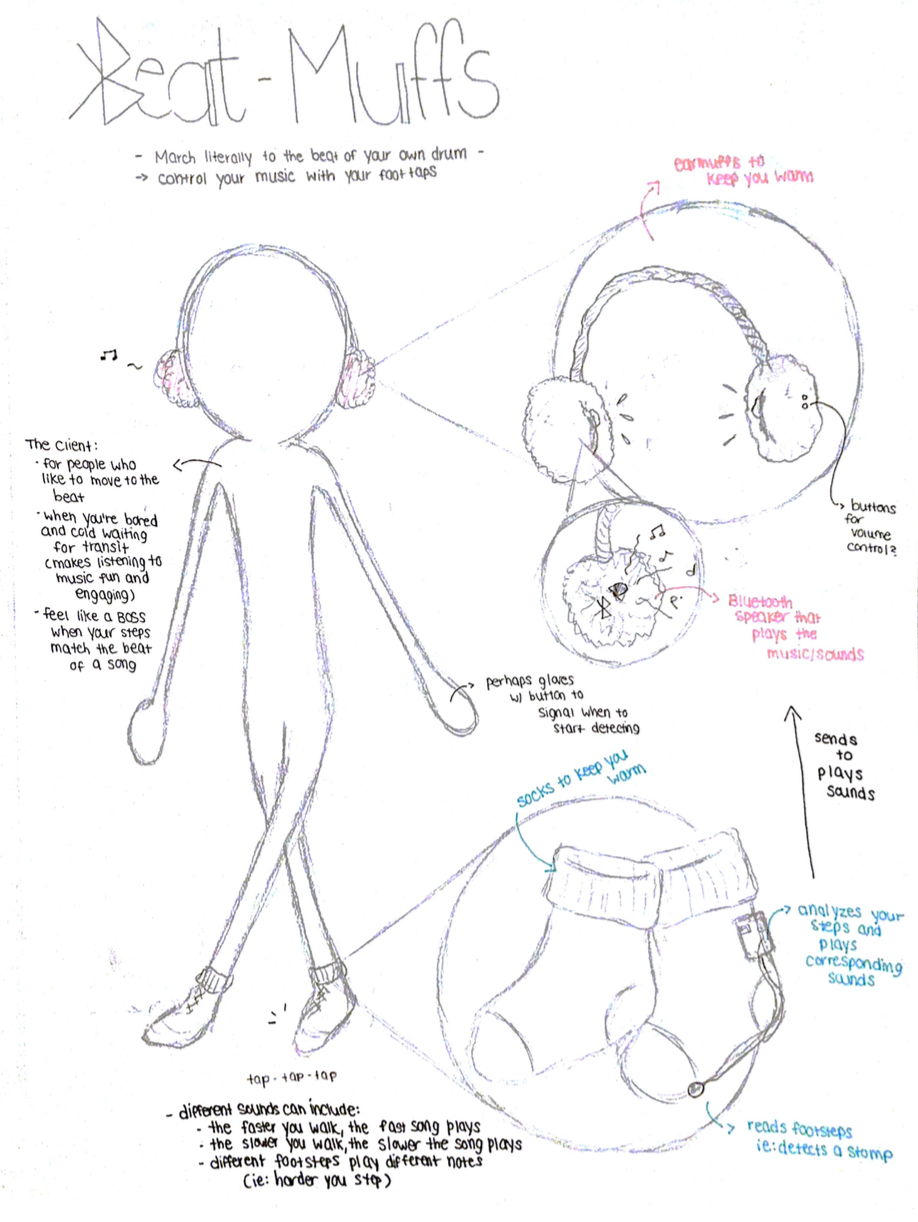 Beat-Muffs
- March literally to the beat of your own drum -
→ control your music with your foot taps
earmuffs to
keep you warm
The Client:
· for people who
like to move to the
beat
· when you're bored
and cold waiting
for transit
(makes listening to
music fun and
engaging)
· feel like a BOSS
when your steps
match the beat
of a song
buttons
for
volume
control?
Bluetooth
speaker that
plays the
music/sounds
perhaps gloves
w/ button to
signal when to
start detecting
sends
to
plays
sounds
socks to keep you
warm
analyzes your
steps and
plays
corresponding
sounds
reads footsteps
ie: detects a stomp
tap - tap - tap
- different sounds can include:
- the faster you walk, the fast song plays
- the slower you walk, the slower the song plays
- different footsteps play different notes
(ie: harder you step)